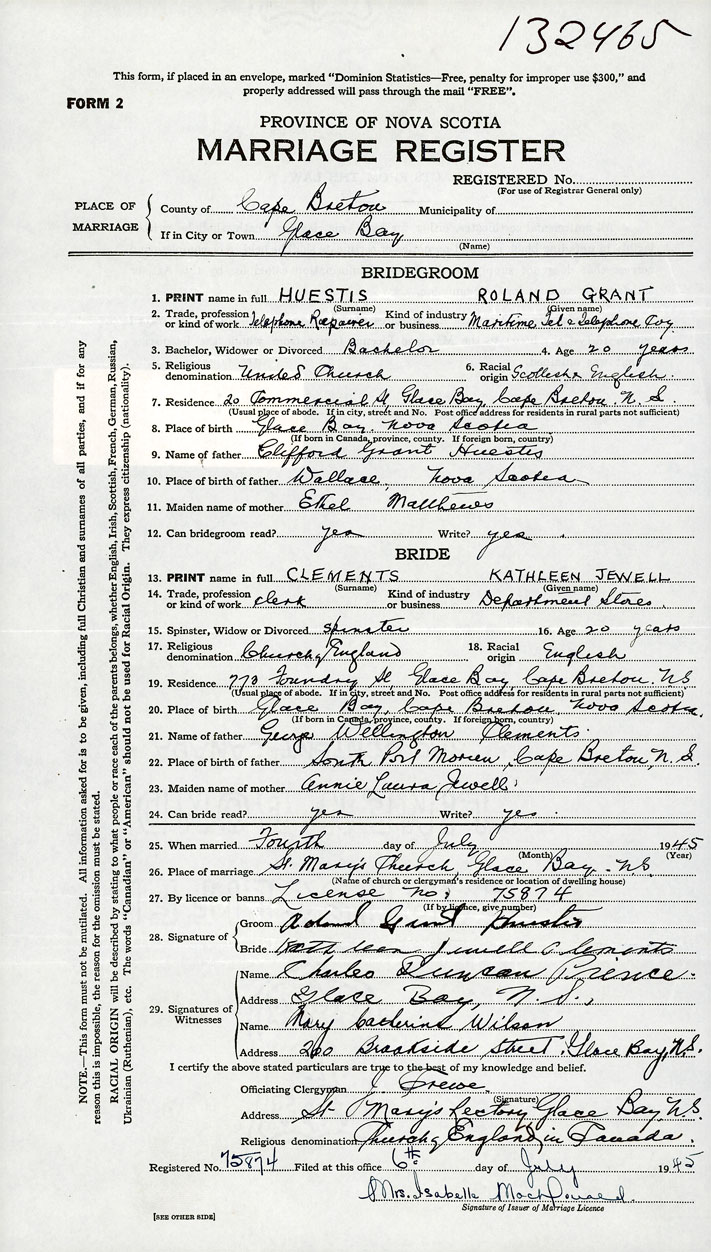 132465
This form, if placed in an envelope, marked "Dominion Statistics—Free, penalty for improper use $300," and
properly addressed will pass through the mail "FREE".
FORM 2
PROVINCE OF NOVA SCOTIA
MARRIAGE REGISTER
REGISTERED No.
(For use of Registrar General only)
PLACE OF MARRIAGE
County of Cape Breton Municipality of
If in City or Town Glace Bay
(Name)
BRIDEGROOM
1. PRINT name in full HUESTIS ROLAND GRANT
(Surname) (Given name)
2. Trade, profession or kind of work Telephone Repairer Kind of industry or business Maritime Tel & Telephone Coy
3. Bachelor, Widower or Divorced Bachelor 4. Age 20 years
5. Religious denomination United Church 6. Racial origin Scottish & English.
7. Residence 20 Commercial St, Glace Bay, Cape Breton. N. S.
(Usual place of abode. If in city, street and No. Post office address for residents in rural parts not sufficient)
8. Place of birth Glace Bay. Nova Scotia
(If born in Canada, province, county. If foreign born, country)
9. Name of father Clifford Grant Huestis
10. Place of birth of father Wallace, Nova Scotia
11. Maiden name of mother Ethel Matthews
12. Can bridegroom read? yes Write? yes.
BRIDE
13. PRINT name in full CLEMENTS KATHLEEN JEWELL
(Surname) (Given name)
14. Trade, profession or kind of work clerk Kind of industry or business Department Stores.
15. Spinster, Widow or Divorced spinster 16. Age 20 years
17. Religious denomination Church of England 18. Racial origin English
19. Residence 773 Foundry St Glace Bay, Cape Breton. N.S
(Usual place of abode. If in city, street and No. Post office address for residents in rural parts not sufficient)
20. Place of birth Glace Bay, Cape Breton Nova Scotia.
(If born in Canada, province, county. If foreign born, country)
21. Name of father George Wellington Clements.
22. Place of birth of father South Port Morien, Cape Breton, N. S.
23. Maiden name of mother Annie Laura Jewell
24. Can bride read? yes Write? yes.
25. When married Fourth day of July 1945
(Month) (Year)
26. Place of marriage St. Mary's Church, Glace Bay. N.S
(Name of church or clergyman's residence or location of dwelling house)
27. By licence or banns License no. 75874
(If by licence, give number)
28. Signature of
Groom Roland Grant Huestis
Bride Kathleen Jewell Clements
29. Signatures of Witnesses
Name Charles Duncan Prence.
Address Glace Bay, N.S.,
Name Mary Catherine Wilson
Address 260 Brookside Street, Glace Bay, N.S.
I certify the above stated particulars are true to the best of my knowledge and belief.
Officiating Clergyman J. Frewe.
(Signature)
Address St Mary's Rectory Glace Bay, N.S.
Religious denomination Church of England in Canada.
Registered No. 75874 Filed at this office 6th day of July 1945
Mrs. Isabella MacDonald.
Signature of Issuer of Marriage Licence
[SEE OTHER SIDE]
NOTE.—This form must not be mutilated. All information asked for is to be given, including full Christian and surnames of all parties, and if for any
reason this is impossible, the reason for the omission must be stated.
RACIAL ORIGIN will be described by stating to what people or race each of the parents belongs, whether English, Irish, Scottish, French, German, Russian,
Ukrainian (Ruthenian), etc. The words "Canadian" or "American" should not be used for Racial Origin. They express citizenship (nationality).